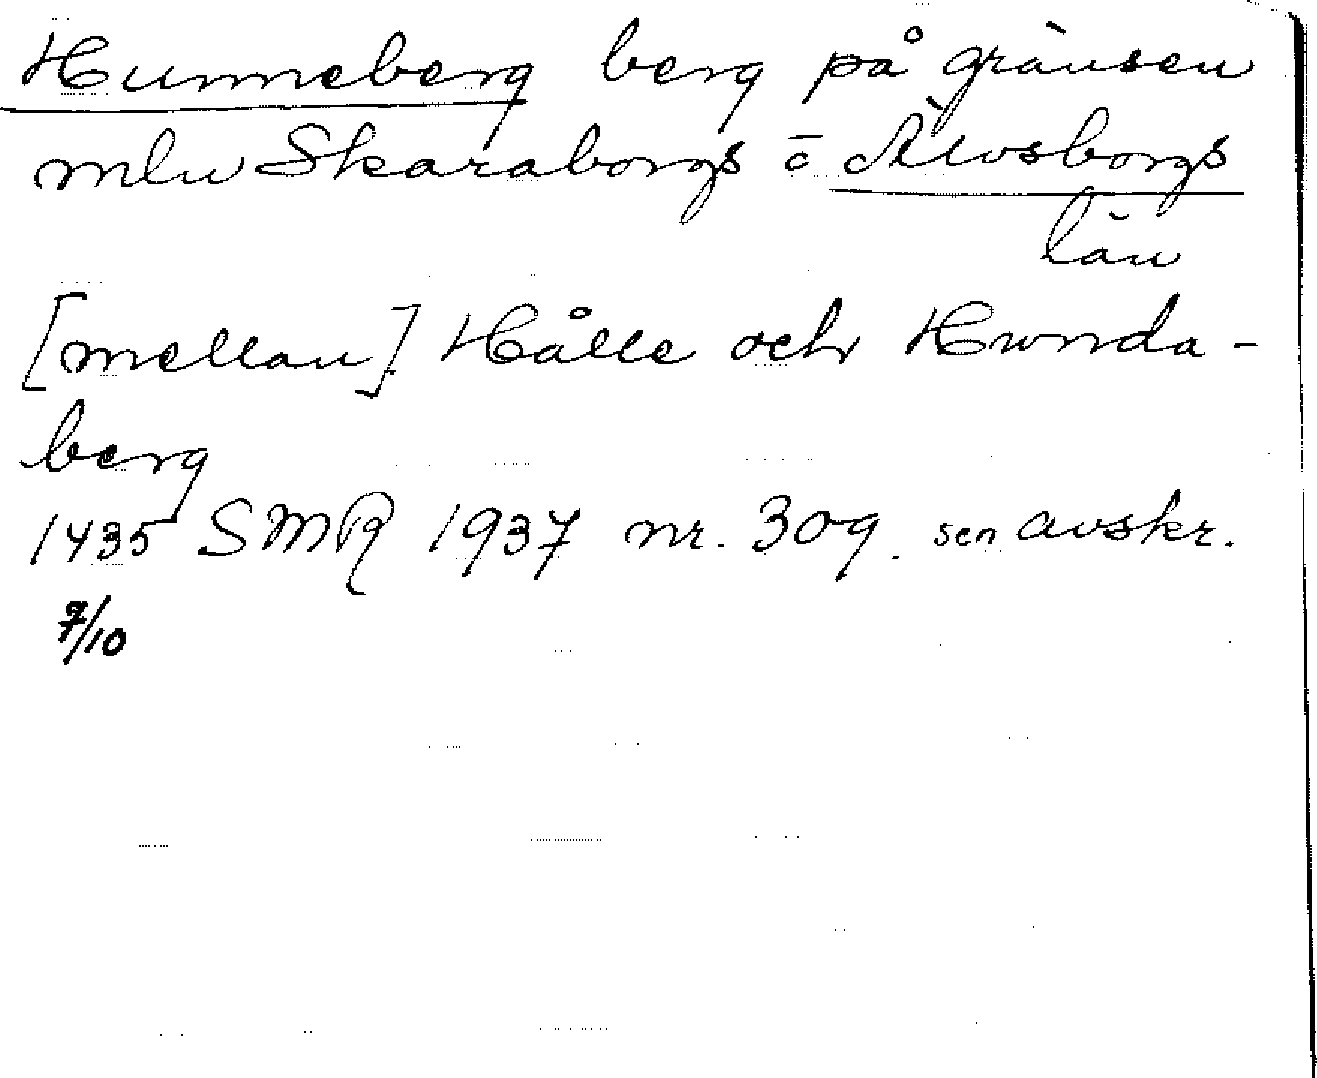 Hunneberg berg på gränsen
mln Skaraborgs o Älvsborgs
län
[mellan] Hålle och Hwnda-
berg
1435 SMR 1937 nr. 309. sen avskr.
7/10